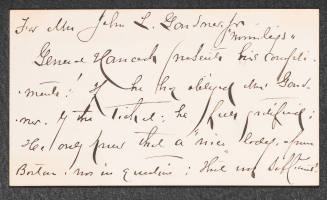 For Mrs John L. Gardner, Jr
General Hancock presents his compli-
ments: If he has obliged Mrs Gard-
ner, by the ticket: he feels gratified:
He only knew that a "nice" lady, from
Boston was in question: that was